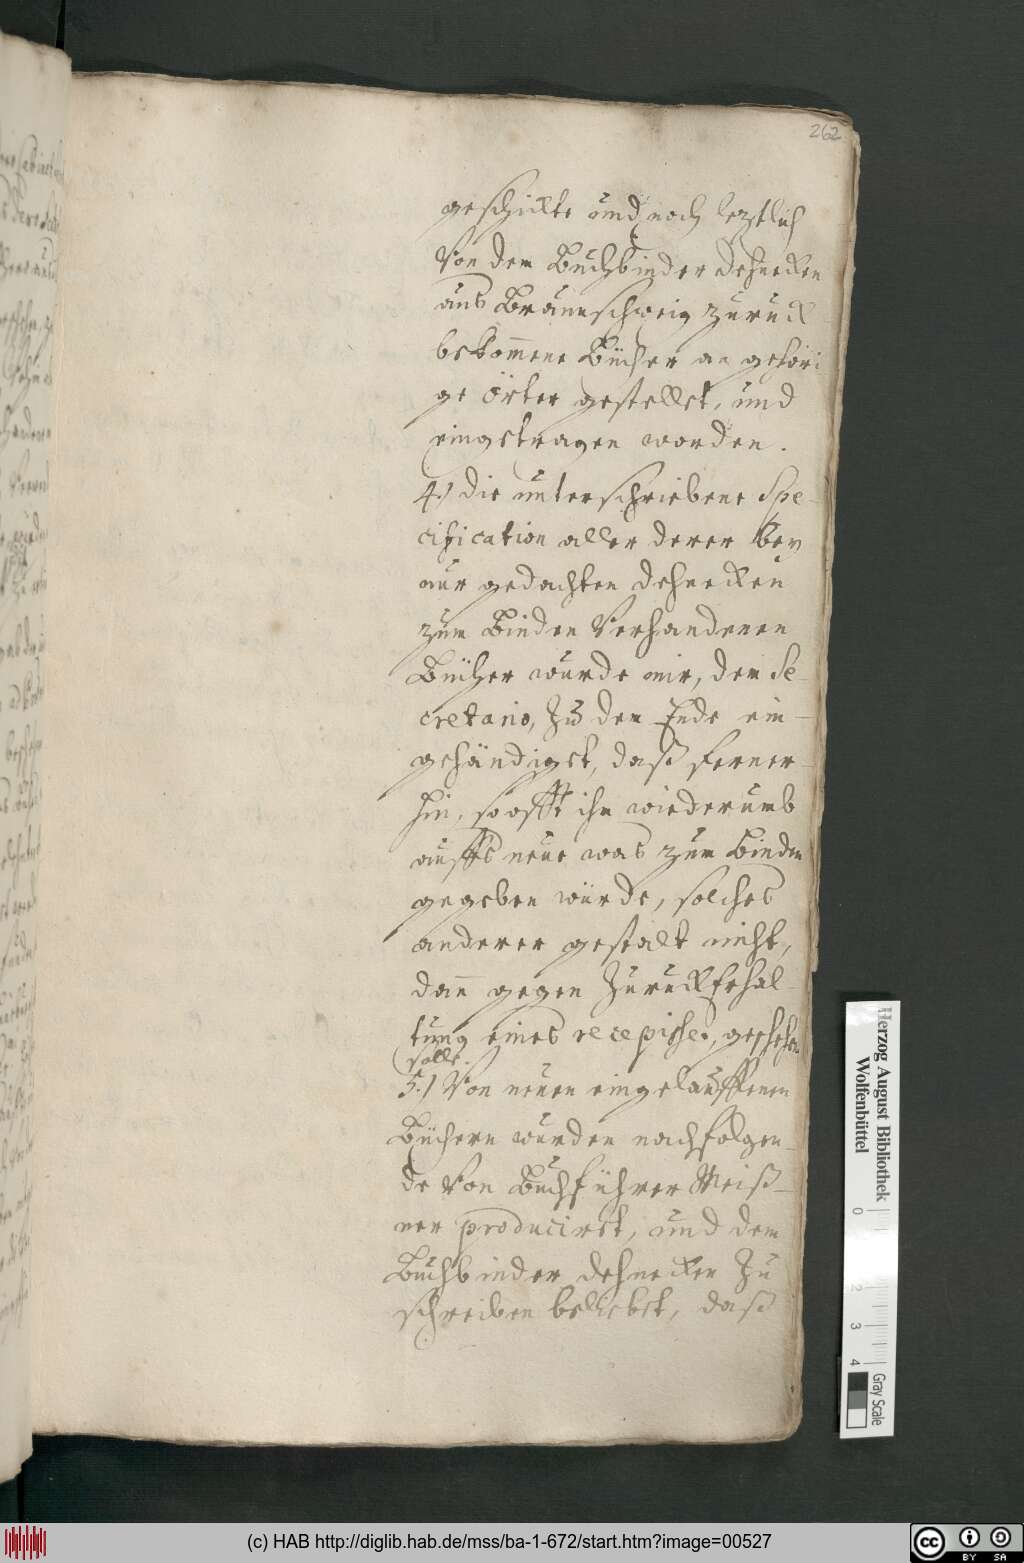 262
geschickte und noch leztlich
Von dem Buchbinder Dehnecken
aus Braunschweig zurück
bekom̅ene Bücher an gehöri
ge Örter gestellet, und
eingetragen worden.
4.) die unterschriebene Spe-
cification aller derer Bey
nur gedachten Dehnecken
zum Binden Verhandenen
Bücher wurde mir, dem Se-
cretario, Zu dem Ende ein-
gehändiget, daß ferner-
hin, so offt ihm wiederumb
auffs neue was zum Binden
gegeben würde, solches
anderer gestalt nicht,
dan̅ gegen ZurückErhal-
tung eines recepisses, geschehen
solle.
5.) Von neuen eingelauffenen
Büchern wurden nachfolgen-
de Von Buchführer Meiß-
ner produciret, und dem
Buchbinder Dehnecken Zu
schreiben beliebet, daß
Herzog August Bibliothek
Wolfenbüttel
0
2
3
4
Gray Scale
(c) HAB http://diglib.hab.de/mss/ba-1-672/start.htm?image=00527
cc BY SA